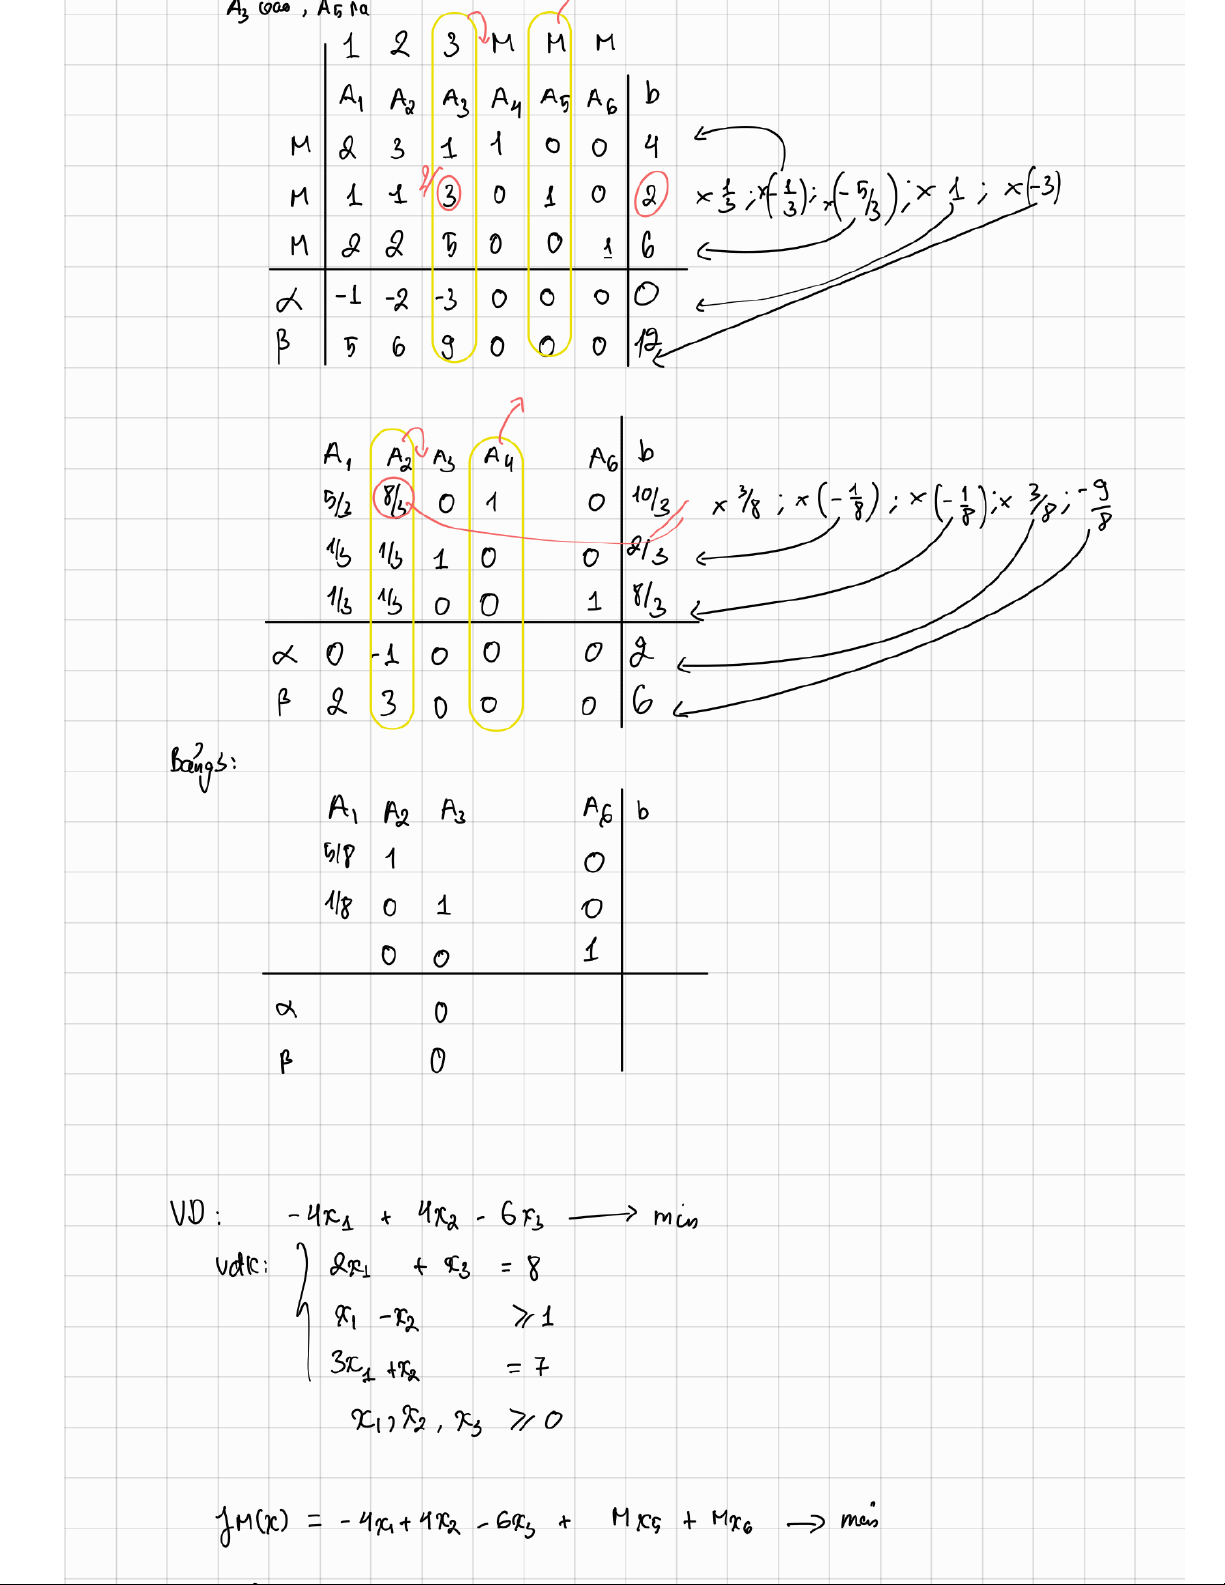 A₃ vào, A₅ ra
1 2 3 M M M
A₁ A₂ A₃ A₄ A₅ A₆ b
M 2 3 1 1 0 0 4
M 1 1 3 0 1 0 2 × 1/3 ; ×(-1/3) ; ×(-5/3) ; × 1 ; ×(-3)
M 2 2 5 0 0 1 6
α -1 -2 -3 0 0 0 0
β 5 6 9 0 0 0 12
A₁ A₂ A₃ A₄ A₆ b
5/3 8/3 0 1 0 10/3 × 3/8 ; ×(-1/8) ; ×(-1/8) ; × 3/8 ; -9/8
1/3 1/3 1 0 0 2/3
1/3 1/3 0 0 1 8/3
α 0 -1 0 0 0 2
β 2 3 0 0 0 6
Bảng 3:
A₁ A₂ A₃ A₆ b
5/8 1 0
1/8 0 1 0
0 0 1
α 0
β 0
VD: -4x₁ + 4x₂ - 6x₃ → min
vdk: { 2x₁ + x₃ = 8
x₁ - x₂ ≥ 1
3x₁ + x₂ = 7
x₁, x₂, x₃ ≥ 0
fM(x) = -4x₁ + 4x₂ - 6x₃ + Mx₅ + Mx₆ → min